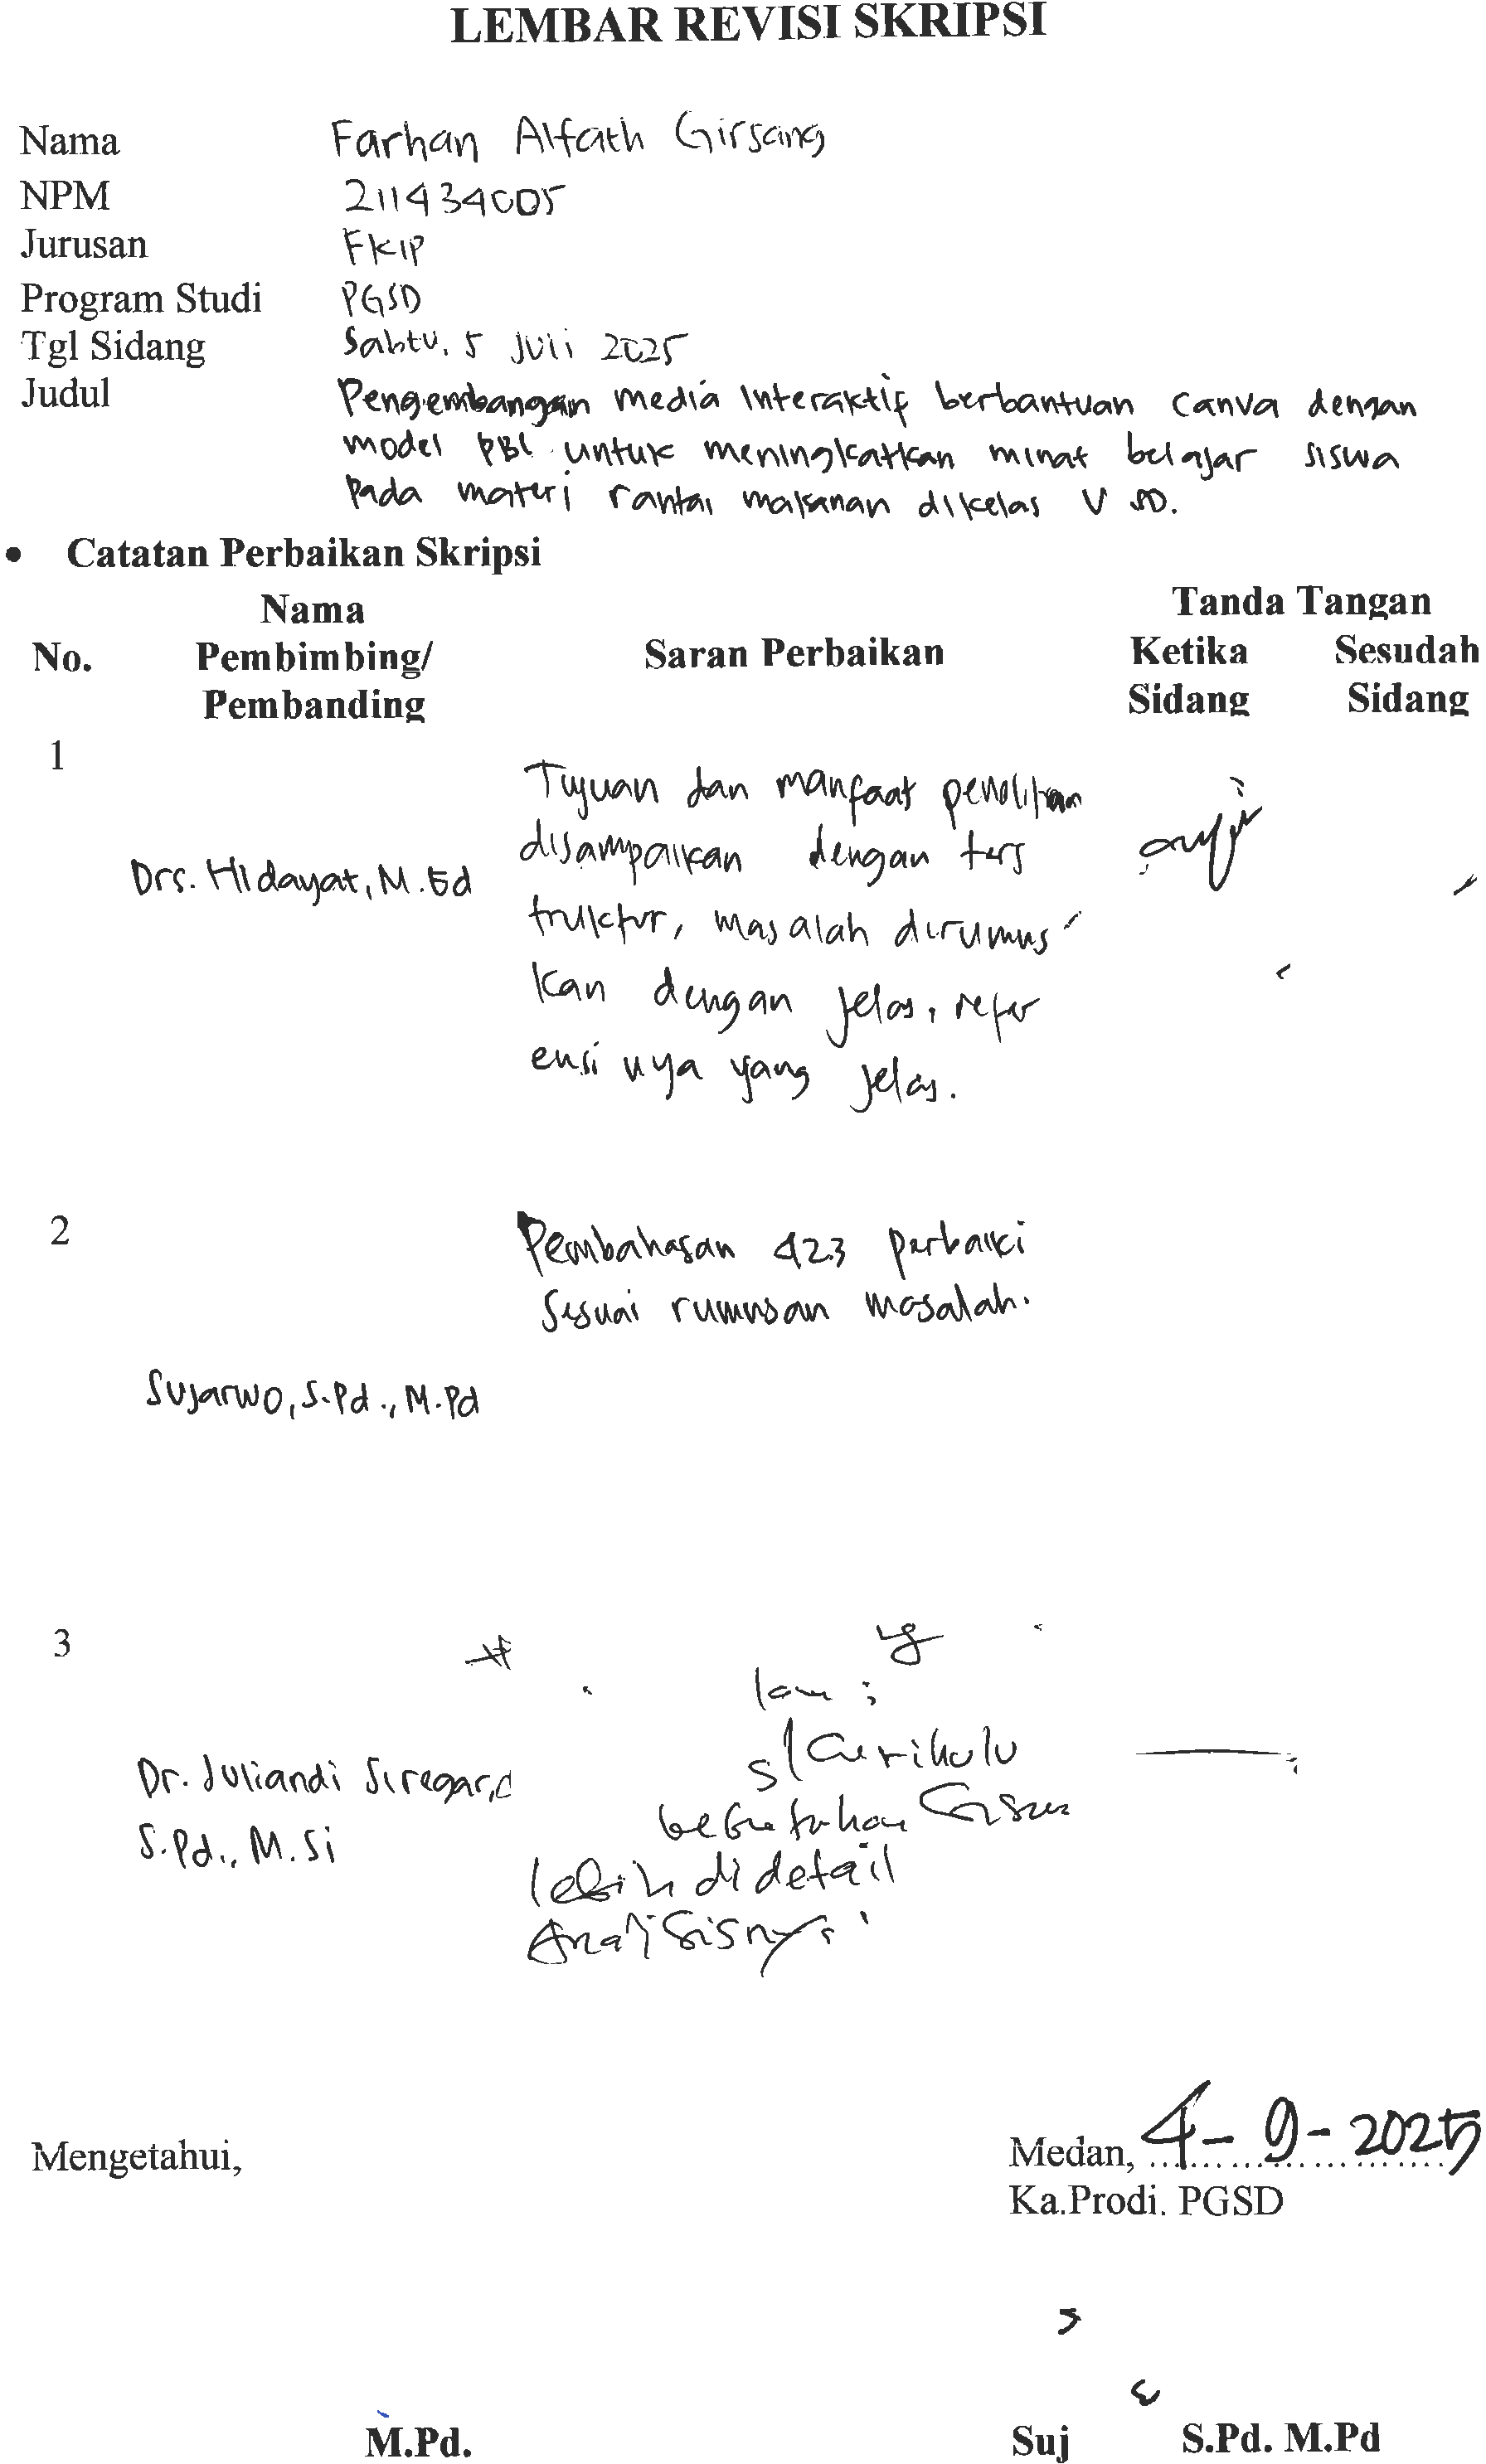 LEMBAR REVISI SKRIPSI
Nama Farhan Alfath Girsang
NPM 211434005
Jurusan FKIP
Program Studi PGSD
Tgl Sidang Sabtu, 5 Juli 2025
Judul Pengembangan media Interaktif berbantuan Canva dengan
model PBL untuk meningkatkan minat belajar siswa
Pada materi rantai makanan dikelas V SD.
• Catatan Perbaikan Skripsi
No. Nama Pembimbing/ Pembanding Saran Perbaikan Tanda Tangan
Ketika Sidang Sesudah Sidang
1
Drs. Hidayat, M.Ed
Tujuan dan manfaat penelitian
disampaikan dengan ters
truktur, masalah dirumus
kan dengan jelas, refer
ensi nya yang jelas.
2
Sujarwo, S.Pd., M.Pd
Pembahasan 4.2.3 perbaiki
Sesuai rumusan masalah.
3
Dr. Juliandi Siregar,
S.Pd., M.Si
kurikulu
kebutuhan Siswa
lebih di detail
Analisisnya
Mengetahui,
Medan, 4-9-2025
Ka.Prodi. PGSD
M.Pd.
Suj S.Pd. M.Pd